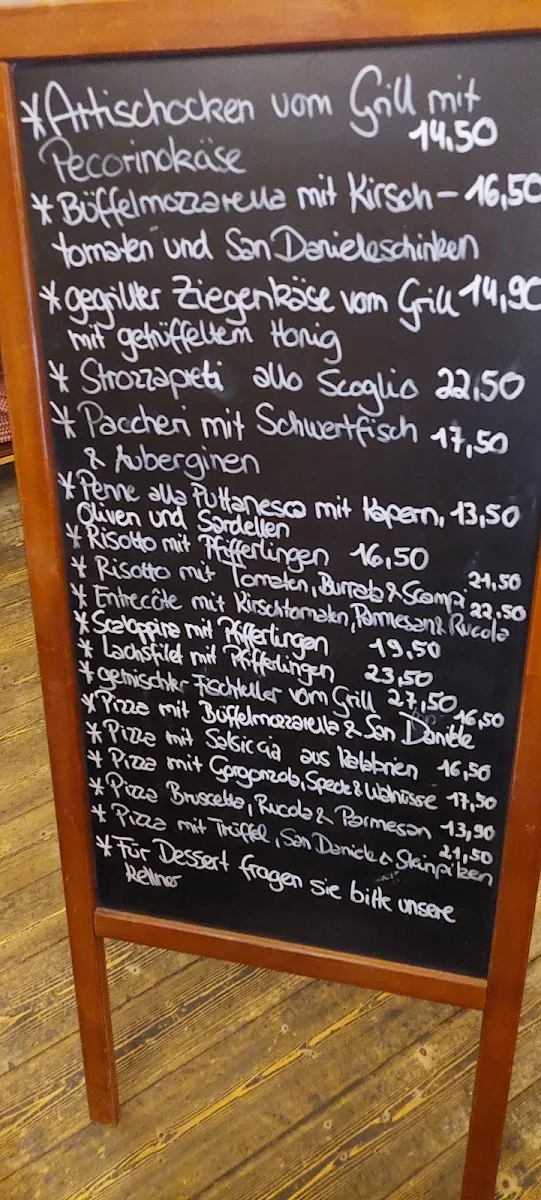 *Artischocken vom Grill mit
Pecorinokäse 14,50
*Büffelmozzarella mit Kirsch- 16,50
tomaten und San Danieleschinken
*gegrillter Ziegenkäse vom Grill 14,90
mit getrüffeltem Honig
* Strozzapreti allo Scoglio 22,50
* Paccheri mit Schwertfisch 17,50
& Auberginen
*Penne alla Puttanesca mit Kapern, 13,50
Oliven und Sardellen
*Risotto mit Pfifferlingen 16,50
* Risotto mit Tomaten, Burrata & Scampi 21,50
* Entrecôte mit Kirschtomaten, Parmesan & Rucola 22,50
*Scaloppine mit Pfifferlingen 19,50
* Lachsfilet mit Pfifferlingen 23,50
*gemischter Fischteller vom Grill 27,50
*Pizza mit Büffelmozzarella & San Daniele 16,50
*Pizza mit Salsiccia aus Kalabrien 16,50
* Pizza mit Gorgonzola, Speck & Walnüsse 17,50
*Pizza Bruscetta, Rucola & Parmesan 13,90
* Pizza mit Trüffel, San Daniele & Steinpilzen 21,50
*Für Dessert fragen sie bitte unsere
Kellner